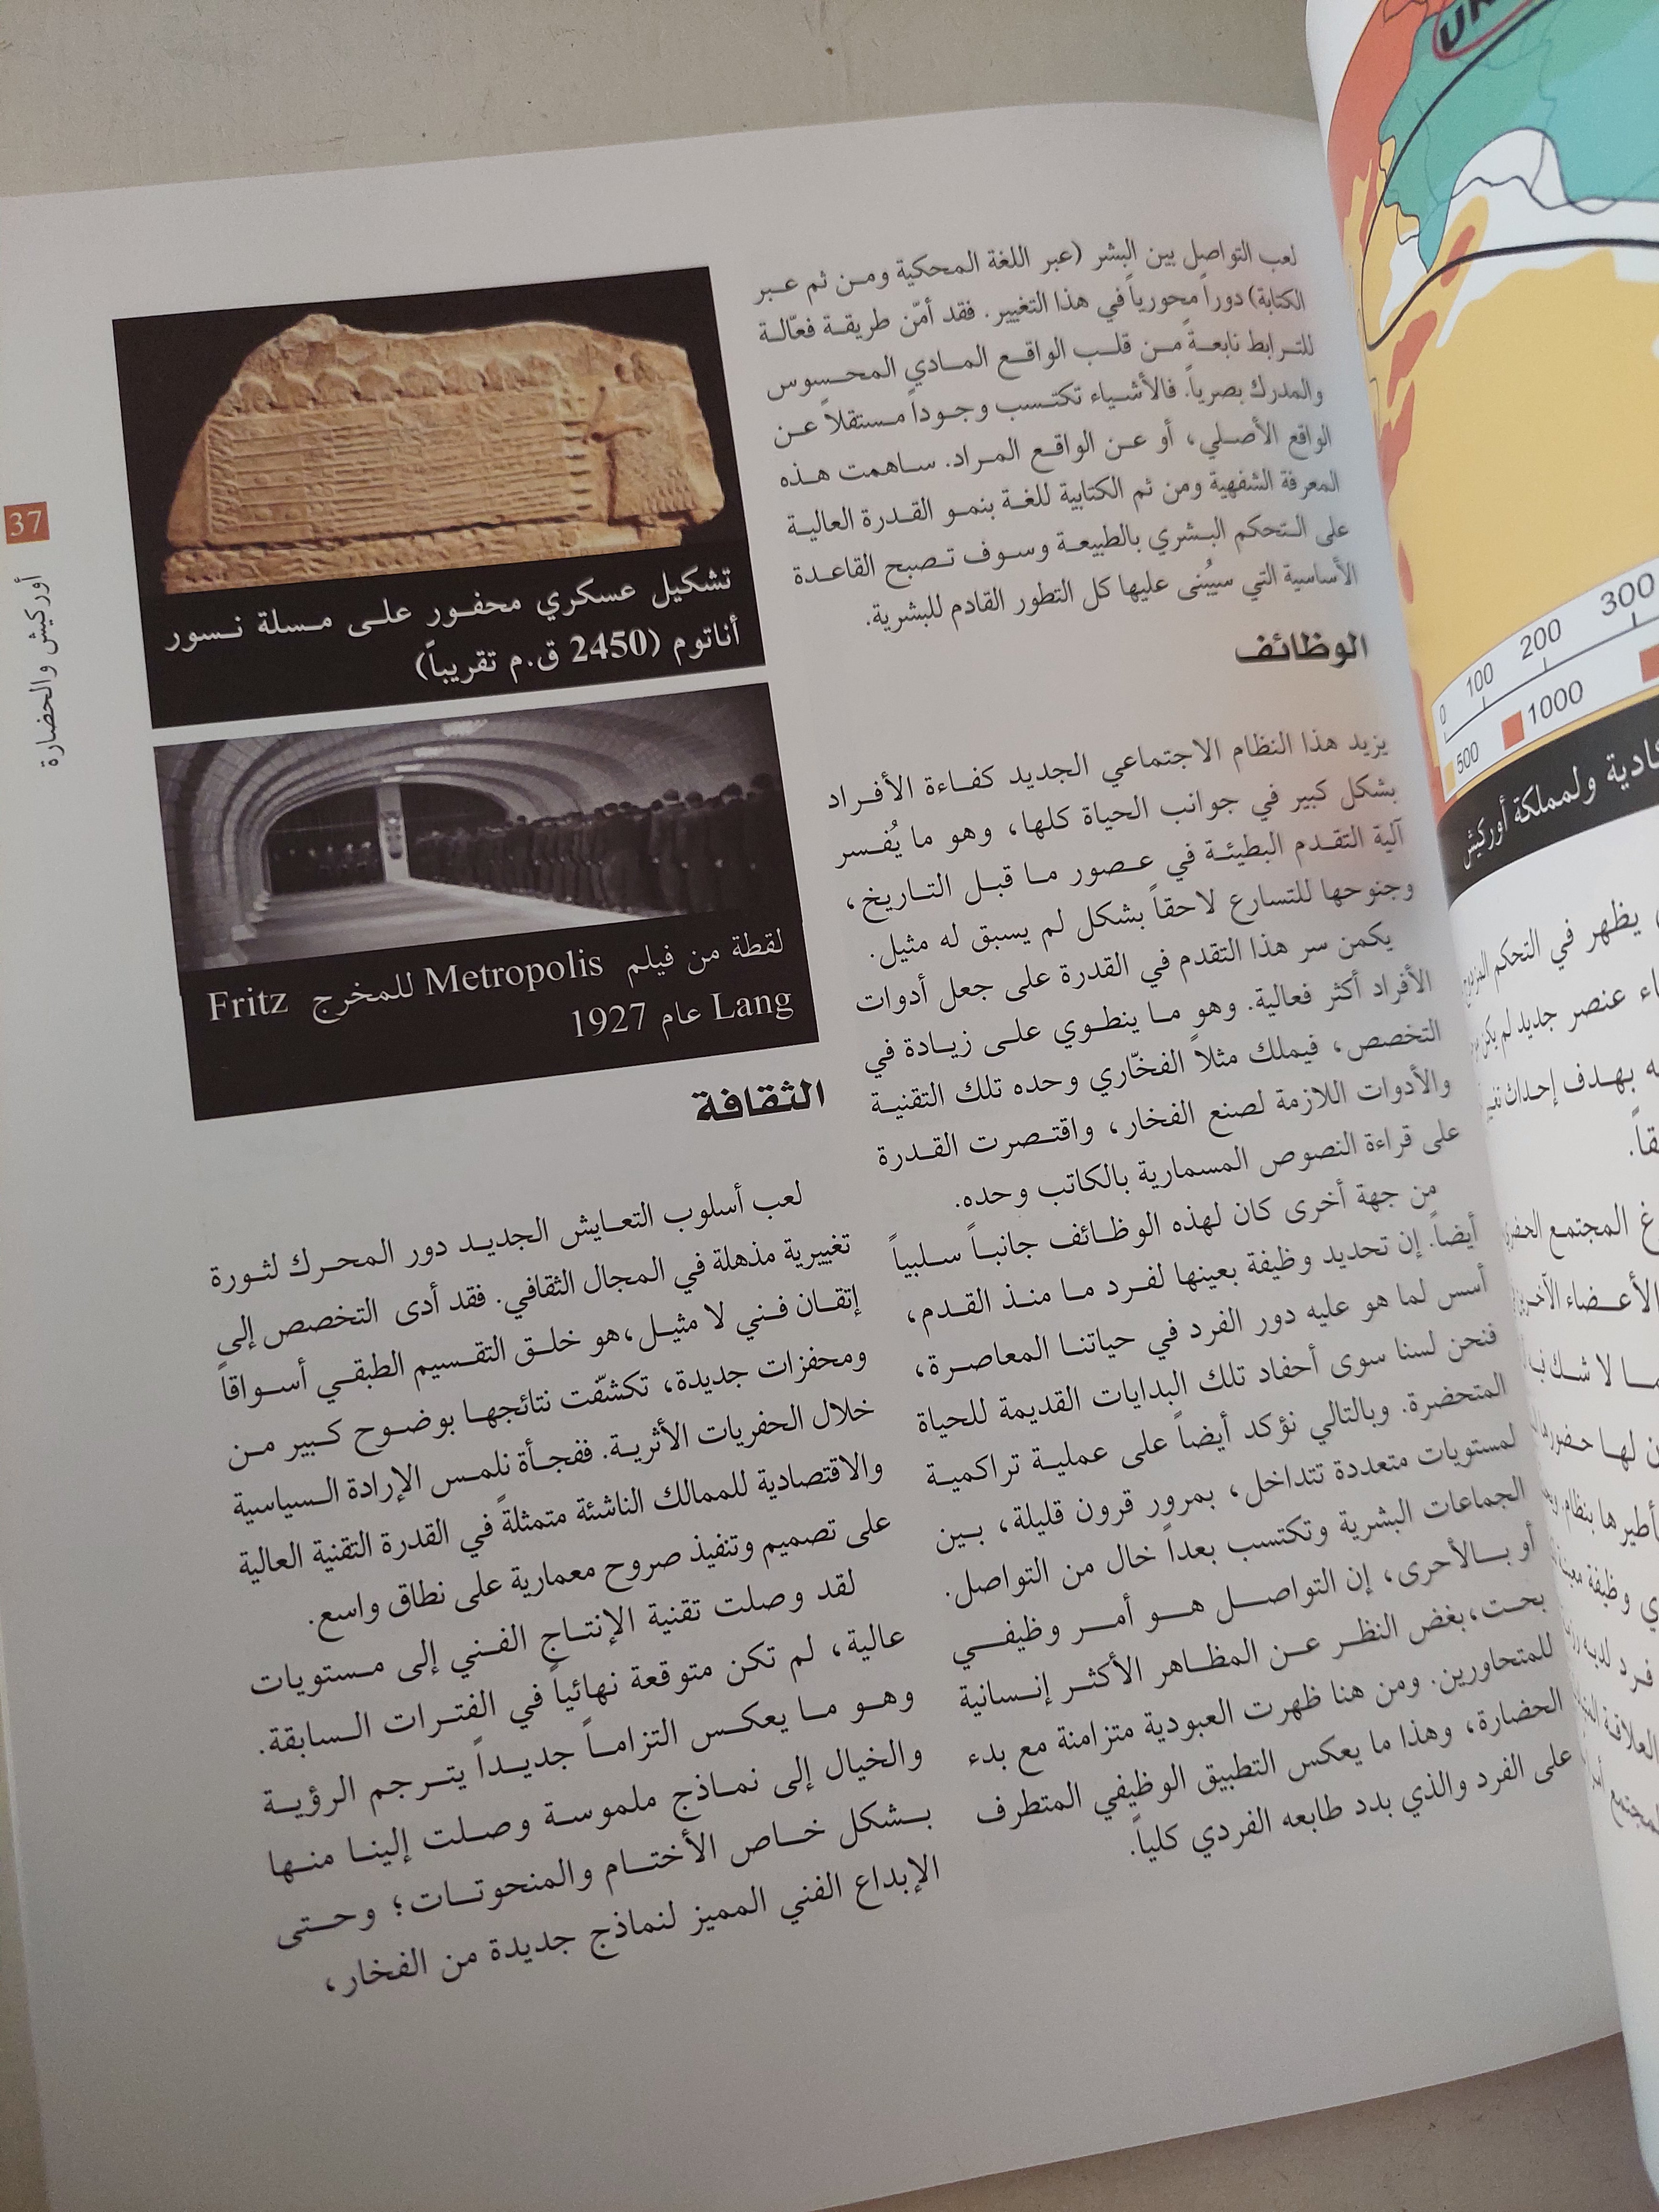 لعب التواصل بين البشر (عبر اللغة المحكية ومن ثم عبر
الكتابة) دوراً محورياً في هذا التغيير. فقد أمّن طريقة فعّالة
للترابط نابعةً من قلب الواقع المادي المحسوس
والمدرك بصرياً. فالأشياء تكتسب وجوداً مستقلاً عن
الواقع الأصلي، أو عن الواقع المراد. ساهمت هذه
المعرفة الشفهية ومن ثم الكتابية للغة بنمو القدرة العالية
على التحكم البشري بالطبيعة وسوف تصبح القاعدة
الأساسية التي سيُبنى عليها كل التطور القادم للبشرية.
الوظائف
يزيد هذا النظام الاجتماعي الجديد كفاءة الأفراد
بشكل كبير في جوانب الحياة كلها، وهو ما يُفسر
آلية التقدم البطيئة في عصور ما قبل التاريخ،
وجنوحها للتسارع لاحقاً بشكل لم يسبق له مثيل.
يكمن سر هذا التقدم في القدرة على جعل أدوات
الأفراد أكثر فعالية. وهو ما ينطوي على زيادة في
التخصص، فيملك مثلاً الفخّاري وحده تلك التقنية
والأدوات اللازمة لصنع الفخار، واقتصرت القدرة
على قراءة النصوص المسمارية بالكاتب وحده.
من جهة أخرى كان لهذه الوظائف جانباً سلبياً
أيضاً. إن تحديد وظيفة بعينها لفرد ما منذ القدم،
أسس لما هو عليه دور الفرد في حياتنا المعاصرة،
فنحن لسنا سوى أحفاد تلك البدايات القديمة للحياة
المتحضرة. وبالتالي نؤكد أيضاً على عملية تراكمية
لمستويات متعددة تتداخل، بمرور قرون قليلة، بين
الجماعات البشرية وتكتسب بعداً خال من التواصل.
أو بالأحرى، إن التواصل هو أمر وظيفي
بحت،بغض النظر عن المظاهر الأكثر إنسانية
للمتحاورين. ومن هنا ظهرت العبودية متزامنة مع بدء
الحضارة، وهذا ما يعكس التطبيق الوظيفي المتطرف
على الفرد والذي بدد طابعه الفردي كلياً.
تشكيل عسكري محفور على مسلة نسور
أناتوم (2450 ق.م تقريباً)
لقطة من فيلم Metropolis للمخرج Fritz
Lang عام 1927
الثقافة
لعب أسلوب التعايش الجديد دور المحرك لثورة
تغييرية مذهلة في المجال الثقافي. فقد أدى التخصص إلى
إتقان فني لا مثيل،هو خلق التقسيم الطبقي أسواقاً
ومحفزات جديدة، تكشّفت نتائجها بوضوح كبير من
خلال الحفريات الأثرية. ففجأة نلمس الإرادة السياسية
والاقتصادية للممالك الناشئة متمثلةً في القدرة التقنية العالية
على تصميم وتنفيذ صروح معمارية على نطاق واسع.
لقد وصلت تقنية الإنتاج الفني إلى مستويات
عالية، لم تكن متوقعة نهائياً في الفترات السابقة.
وهو ما يعكس التزاماً جديداً يترجم الرؤية
والخيال إلى نماذج ملموسة وصلت إلينا منها
بشكل خاص الأختام والمنحوتات؛ وحتى
الإبداع الفني المميز لنماذج جديدة من الفخار،
37
أوركيش والحضارة
0 100 200 300
500 1000
ولمملكة أوركيش
يظهر في التحكم
عنصر جديد لم يكن
بهدف إحداث
المجتمع
الأعضاء
لا شك
لها
وظيفة
فرد
العلاقة